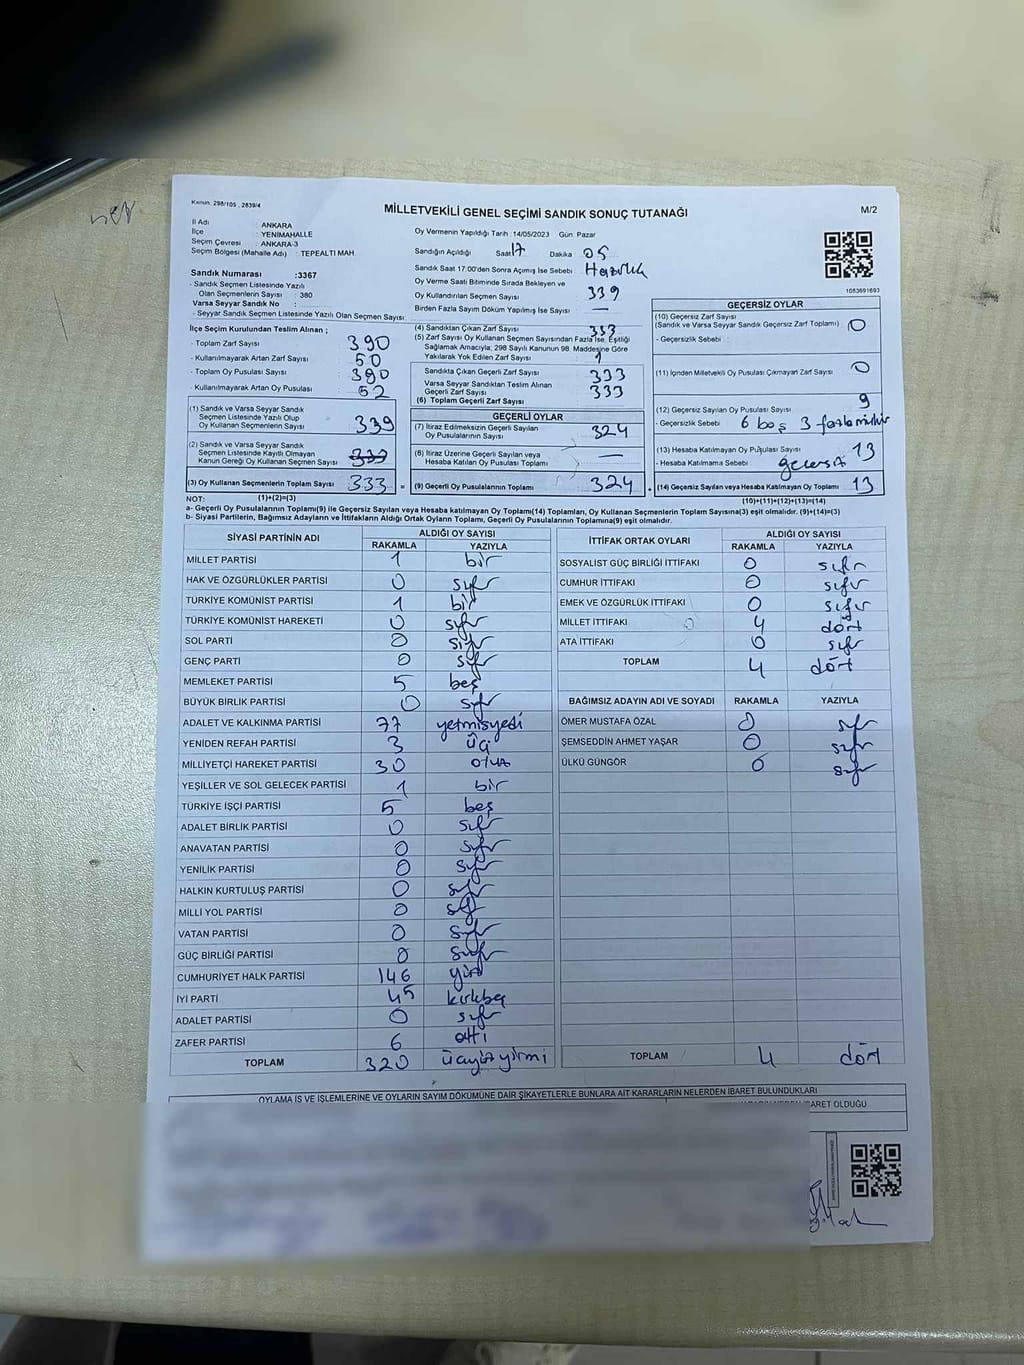 Kanun: 298/105 , 2839/4
MİLLETVEKİLİ GENEL SEÇİMİ SANDIK SONUÇ TUTANAĞI
M/2
İl Adı : ANKARA
İlçe : YENİMAHALLE
Seçim Çevresi : ANKARA-3
Seçim Bölgesi (Mahalle Adı) : TEPEALTI MAH
Oy Vermenin Yapıldığı Tarih :14/05/2023 Gün: Pazar
Sandığın Açıldığı Saat 17 Dakika : 05
Sandık Saat 17.00'den Sonra Açılmış İse Sebebi : Hazırlık
Oy Verme Saati Bitiminde Sırada Bekleyen ve
Oy Kullandırılan Seçmen Sayısı : 339
Birden Fazla Sayım Döküm Yapılmış İse Sayısı : —
1083691693
Sandık Numarası :3367
- Sandık Seçmen Listesinde Yazılı
Olan Seçmenlerin Sayısı : 380
Varsa Seyyar Sandık No :
- Seyyar Sandık Seçmen Listesinde Yazılı Olan Seçmen Sayısı:
İlçe Seçim Kurulundan Teslim Alınan ;
- Toplam Zarf Sayısı : 390
- Kullanılmayarak Artan Zarf Sayısı : 50
- Toplam Oy Pusulası Sayısı : 390
- Kullanılmayarak Artan Oy Pusulası : 52
(1) Sandık ve Varsa Seyyar Sandık
Seçmen Listesinde Yazılı Olup
Oy Kullanan Seçmenlerin Sayısı 339
(2) Sandık ve Varsa Seyyar Sandık
Seçmen Listesinde Kayıtlı Olmayan
Kanun Gereği Oy Kullanan Seçmen Sayısı 339
(3) Oy Kullanan Seçmenlerin Toplam Sayısı 333 =
(4) Sandıktan Çıkan Zarf Sayısı : 333
(5) Zarf Sayısı Oy Kullanan Seçmen Sayısından Fazla İse, Eşitliği
Sağlamak Amacıyla; 298 Sayılı Kanunun 98. Maddesine Göre
Yakılarak Yok Edilen Zarf Sayısı : 1
Sandıkta Çıkan Geçerli Zarf Sayısı : 333
Varsa Seyyar Sandıktan Teslim Alınan
Geçerli Zarf Sayısı : 333
(6) Toplam Geçerli Zarf Sayısı :
GEÇERLİ OYLAR
(7) İtiraz Edilmeksizin Geçerli Sayılan
Oy Pusulalarının Sayısı : 324
(8) İtiraz Üzerine Geçerli Sayılan veya
Hesaba Katılan Oy Pusulası Toplamı : —
(9) Geçerli Oy Pusulalarının Toplamı : 324
GEÇERSİZ OYLAR
(10) Geçersiz Zarf Sayısı
(Sandık ve Varsa Seyyar Sandık Geçersiz Zarf Toplamı) : 0
- Geçersizlik Sebebi :
(11) İçinden Milletvekili Oy Pusulası Çıkmayan Zarf Sayısı : 0
(12) Geçersiz Sayılan Oy Pusulası Sayısı : 9
- Geçersizlik Sebebi : 6 boş 3 fazla mühür
(13) Hesaba Katılmayan Oy Pusulası Sayısı : 13
- Hesaba Katılmama Sebebi : geçersiz
+ (14) Geçersiz Sayılan veya Hesaba Katılmayan Oy Toplamı 13
NOT: (1)+(2)=(3)
(10)+(11)+(12)+(13)=(14)
a- Geçerli Oy Pusulalarının Toplamı(9) ile Geçersiz Sayılan veya Hesaba katılmayan Oy Toplamı(14) Toplamları, Oy Kullanan Seçmenlerin Toplam Sayısına(3) eşit olmalıdır. (9)+(14)=(3)
b- Siyasi Partilerin, Bağımsız Adayların ve İttifakların Aldığı Ortak Oyların Toplamı, Geçerli Oy Pusulalarının Toplamına(9) eşit olmalıdır.
SİYASİ PARTİNİN ADI ALDIĞI OY SAYISI
RAKAMLA YAZIYLA
MİLLET PARTİSİ 1 bir
HAK VE ÖZGÜRLÜKLER PARTİSİ 0 sıfır
TÜRKİYE KOMÜNİST PARTİSİ 1 bir
TÜRKİYE KOMÜNİST HAREKETİ 0 sıfır
SOL PARTİ 0 sıfır
GENÇ PARTİ 0 sıfır
MEMLEKET PARTİSİ 5 beş
BÜYÜK BİRLİK PARTİSİ 0 sıfır
ADALET VE KALKINMA PARTİSİ 77 yetmişyedi
YENİDEN REFAH PARTİSİ 3 üç
MİLLİYETÇİ HAREKET PARTİSİ 30 otuz
YEŞİLLER VE SOL GELECEK PARTİSİ 1 bir
TÜRKİYE İŞÇİ PARTİSİ 5 beş
ADALET BİRLİK PARTİSİ 0 sıfır
ANAVATAN PARTİSİ 0 sıfır
YENİLİK PARTİSİ 0 sıfır
HALKIN KURTULUŞ PARTİSİ 0 sıfır
MİLLİ YOL PARTİSİ 0 sıfır
VATAN PARTİSİ 0 sıfır
GÜÇ BİRLİĞİ PARTİSİ 0 sıfır
CUMHURİYET HALK PARTİSİ 146
İYİ PARTİ 45 kırkbeş
ADALET PARTİSİ 0 sıfır
ZAFER PARTİSİ 6 altı
TOPLAM 320 üçyüzyirmi
İTTİFAK ORTAK OYLARI ALDIĞI OY SAYISI
RAKAMLA YAZIYLA
SOSYALİST GÜÇ BİRLİĞİ İTTİFAKI 0 sıfır
CUMHUR İTTİFAKI 0 sıfır
EMEK VE ÖZGÜRLÜK İTTİFAKI 0 sıfır
MİLLET İTTİFAKI 4 dört
ATA İTTİFAKI 0 sıfır
TOPLAM 4 dört
BAĞIMSIZ ADAYIN ADI VE SOYADI RAKAMLA YAZIYLA
ÖMER MUSTAFA ÖZAL 0 sıfır
ŞEMSEDDİN AHMET YAŞAR 0 sıfır
ÜLKÜ GÜNGÖR 0 sıfır
TOPLAM 4 dört
OYLAMA İŞ VE İŞLEMLERİNE VE OYLARIN SAYIM DÖKÜMÜNE DAİR ŞİKAYETLERLE BUNLARA AİT KARARLARIN NELERDEN İBARET BULUNDUKLARI
İBARET OLDUĞU